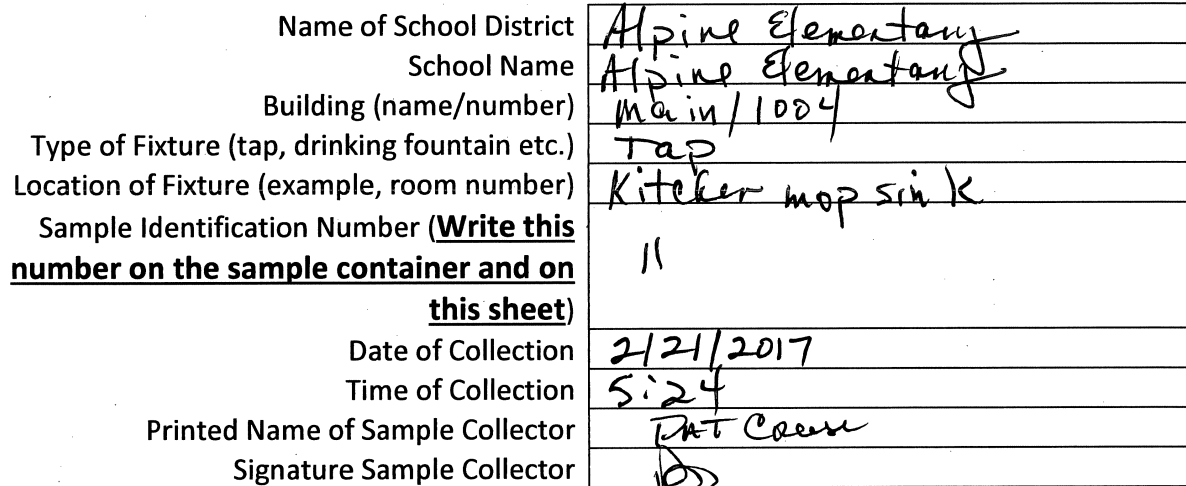 Name of School District Alpine Elementary
School Name Alpine Elementary
Building (name/number) main/1004
Type of Fixture (tap, drinking fountain etc.) Tap
Location of Fixture (example, room number) Kitchen mop sink
Sample Identification Number (Write this
number on the sample container and on 11
this sheet)
Date of Collection 2/21/2017
Time of Collection 5:24
Printed Name of Sample Collector PAT
Signature Sample Collector